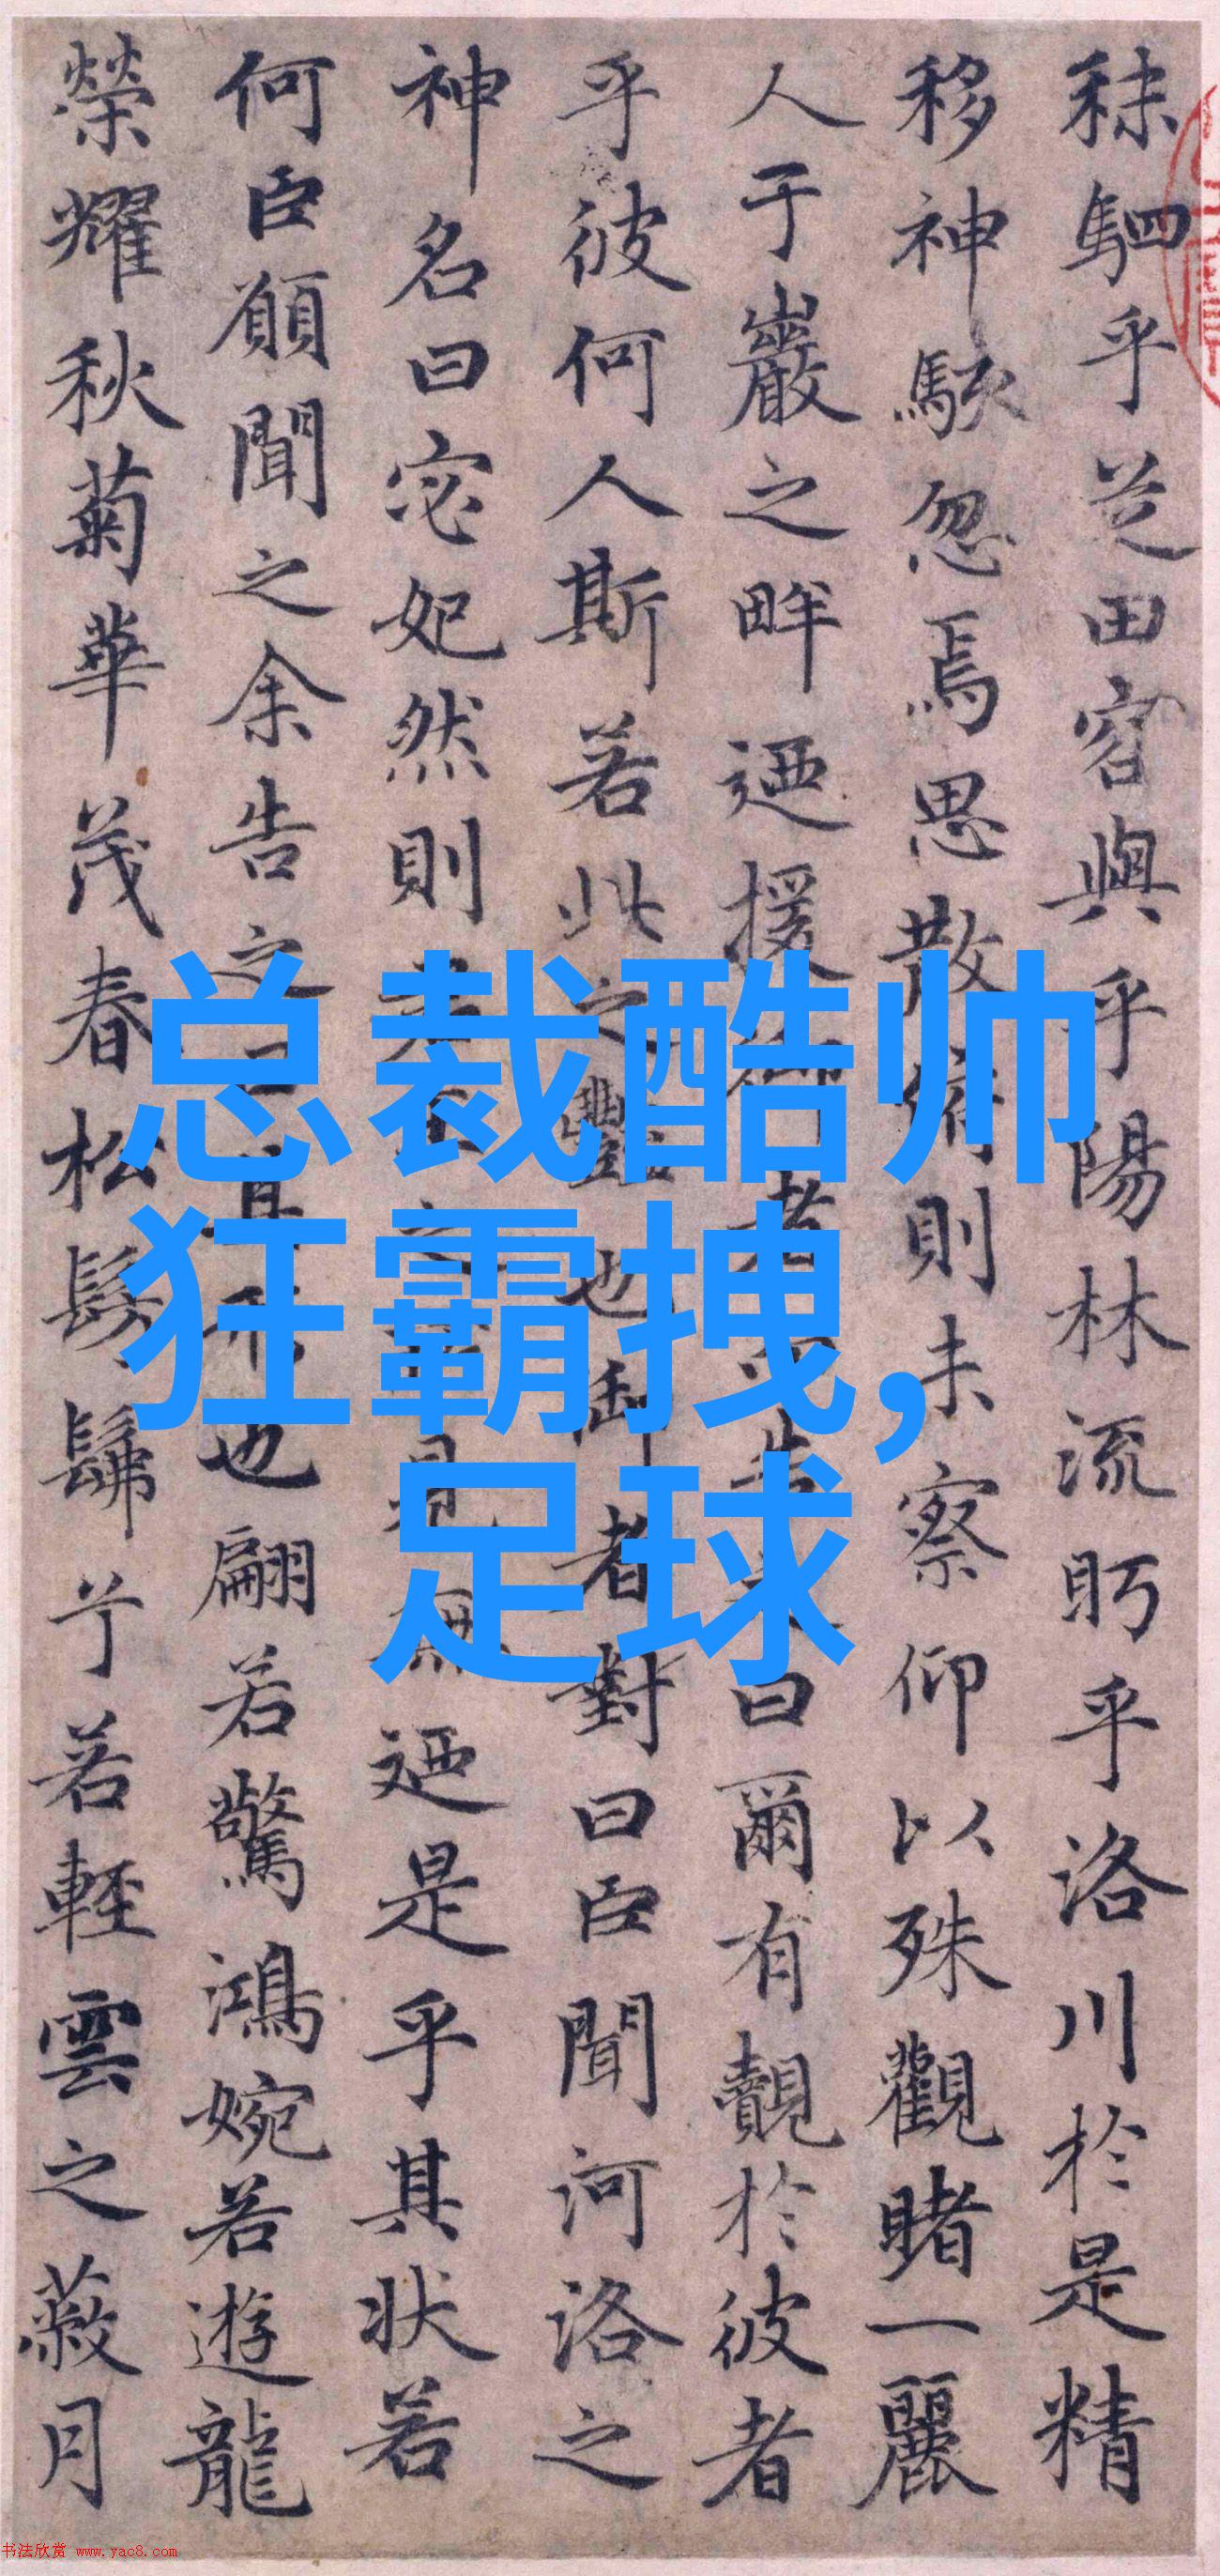 秣駟乎芝田容與乎陽林流眄乎洛川於是精
移神駭忽焉思散俯則未察仰以殊觀睹一麗
人于巖之畔迺援御者而告之曰爾有覿於彼者
乎彼何人斯若此之豔也御者對曰臣聞河洛之
神名曰宓妃然則君王之所見無迺是乎其状若
何臣願聞之余告之曰其形也翩若驚鴻婉若遊龍
榮耀秋菊華茂春松髣髴兮若輕雲之蔽月
总裁酷帅
狂霸拽,
足球
书法欣赏 www.yac8.com